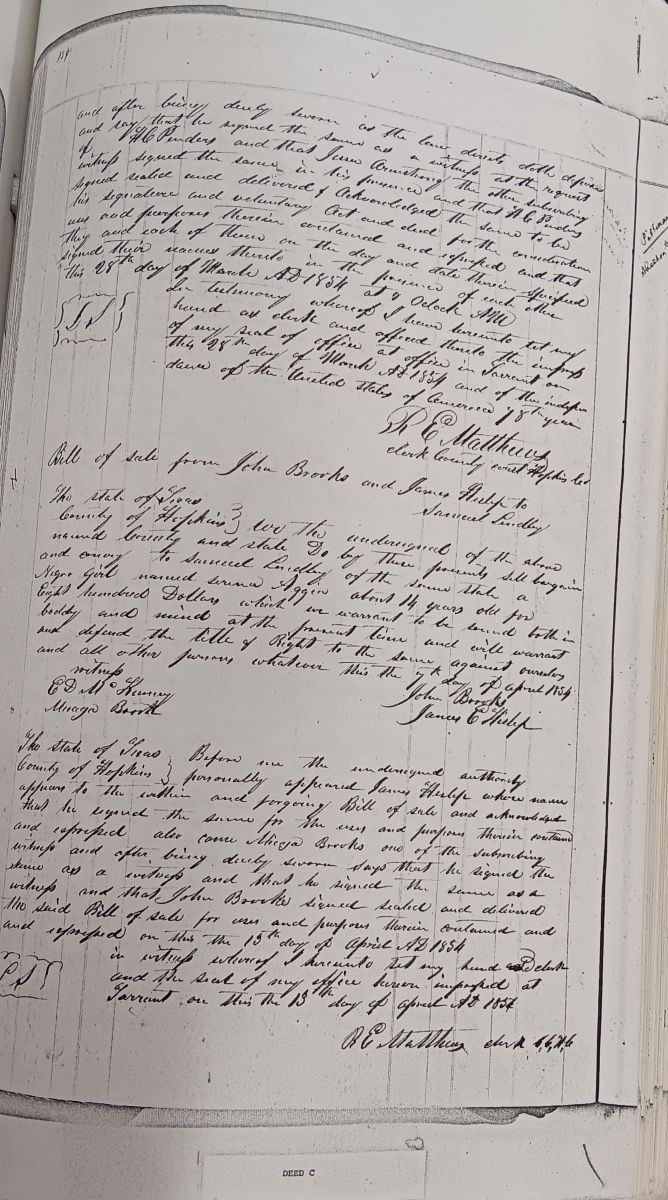 and after being duly sworn as the law directs doth depose
and say that he signed the same as a witness at the request
of H C Penders and that Jesse Armstrong the other subscribing
witness signed the same in his presence and that H C Penders
signed sealed and delivered & Acknowledged the same to be
his signature and voluntary Act and deed for the consideration
uses and purposes therein contained and expressed and that
they and each of them on the day and date therein specified
signed their names thereto in the presence of each other
this 28th day of March AD 1854 at 9 Oclock AM
In testimony whereof I have hereunto set my
hand as clerk and affixed thereto the impress
of my seal of office at office in Tarrant on
this 28th day of March AD 1854 and of the indepen
dance of the United States of America 78th year
R E Matthews
clerk County court Hopkins
Bill of sale from John Brooks and James to
Samuel Lindley
The state of Texas
County of Hopkins } We the undersigned of the above
named County and state Do by these presents sell bargain
and convey to Samuel Lindley of the same state a
Negro Girl named about 14 years old for
Eight hundred Dollars which we warrant to be sound both in
boddy and mind at the present time and will warrant
and defend the title & Right to the same against ourselves
and all other persons whatever this the day of april 1854
witness
E D McKenney
Micaga Brooks
John Brooks
James E
The state of Texas
County of Hopkins } Before me the undersigned authority
personally appeared James whose name
appears to the within and forgoing Bill of sale and acknowledged
that he signed the same for the uses and purposes therein contained
and expressed also came Micaja Brooks one of the subscribing
witness and after being duely sworn says that he signed the
same as a witness and that he signed the same as a
witness and that John Brooks signed sealed and delivered
the said Bill of sale for uses and purposes therein contained and
and expressed on this the 13th day of April AD 1854
in witness whereof I hereunto set my hand as clerk
and the seal of my office hereon impressed at
Tarrant, on this the 13th day of April AD 1854
R E Matthews clerk
DEED C